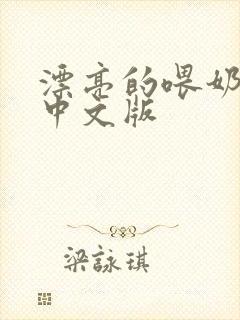 漂亮的喂奶
中文版
梁詠琪